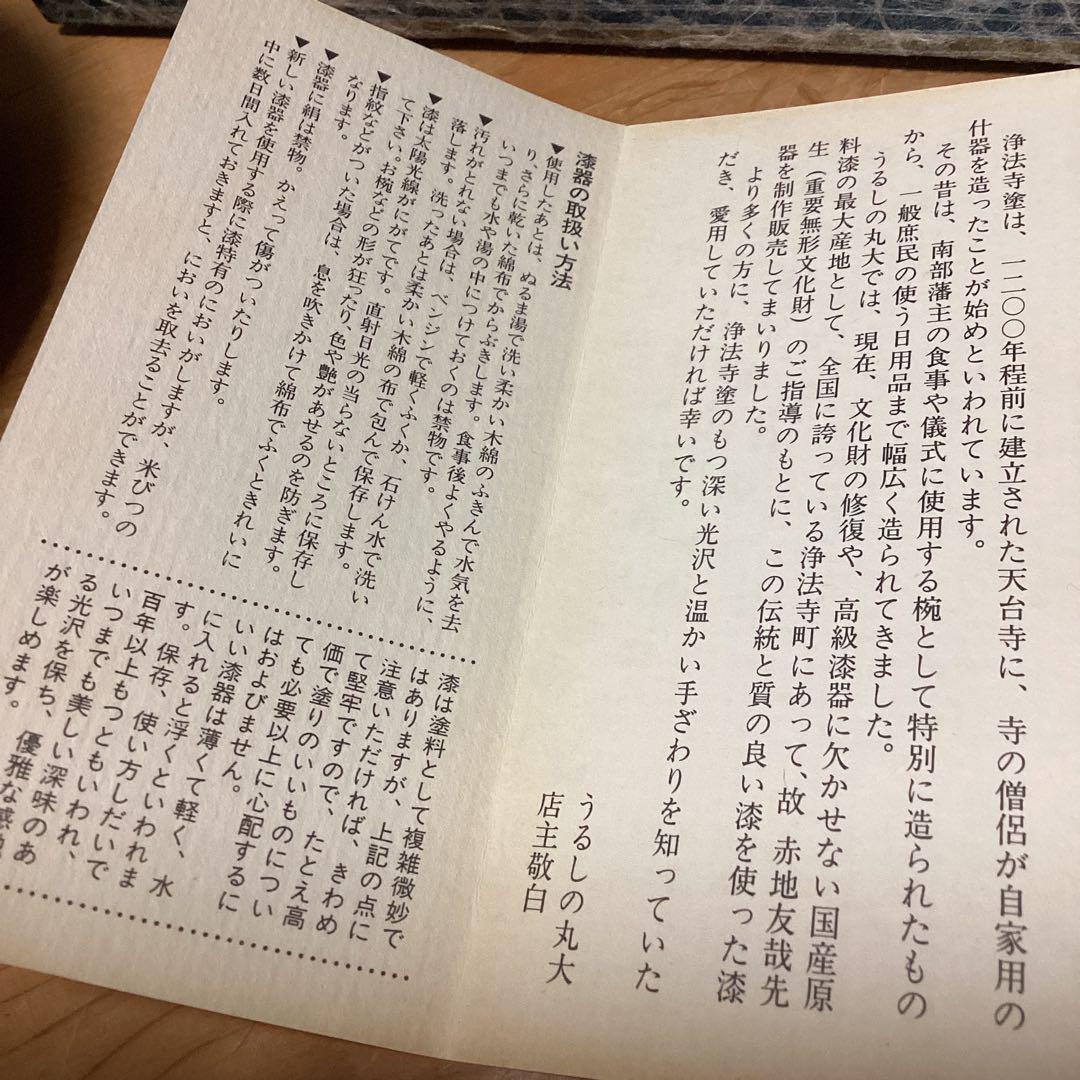 浄法寺塗は、一二〇〇年程前に建立された天台寺に、寺の僧侶が自家用の
什器を造ったことが始めといわれています。
その昔は、南部藩主の食事や儀式に使用する椀として特別に造られたもの
から、一般庶民の使う日用品まで幅広く造られてきました。
うるしの丸大では、現在、文化財の修復や、高級漆器に欠かせない国産原
料漆の最大産地として、全国に誇っている浄法寺町にあって、故 赤地友哉先
生（重要無形文化財）のご指導のもとに、この伝統と質の良い漆を使った漆
器を制作販売してまいりました。
より多くの方に、浄法寺塗のもつ深い光沢と温かい手ざわりを知っていた
だき、愛用していただければ幸いです。
うるしの丸大
店主敬白
漆器の取扱い方法
▼使用したあとは、ぬるま湯で洗い柔かい木綿のふきんで水気を去
り、さらに乾いた綿布でからぶきします。食事後よくやるように、
いつまでも水や湯の中につけておくのは禁物です。
▼汚れがとれない場合は、ベンジンで軽くふくか、石けん水で洗い
落します。洗ったあとは柔かい木綿の布で包んで保存します。
▼漆は太陽光線がにがてです。直射日光の当らないところに保存し
て下さい。お椀などの形が狂ったり、色や艶があせるのを防ぎます。
▼指紋などがついた場合は、息を吹きかけて綿布でふくときれいに
なります。
▼漆器に絹は禁物。かえって傷がついたりします。
▼新しい漆器を使用する際に漆特有のにおいがしますが、米びつの
中に数日間入れておきますと、においを取去ることができます。
漆は塗料として複雑微妙で
はありますが、上記の点に
注意いただければ、きわめ
て堅牢ですので、たとえ高
価で塗りのいいものについ
ても必要以上に心配するに
はおよびません。
いい漆器は薄くて軽く、水
に入れると浮くといわれま
す。保存、使い方しだいで
百年以上もつともいわれ、
いつまでも美しい深味のあ
る光沢を保ち、優雅な感
が楽しめます。